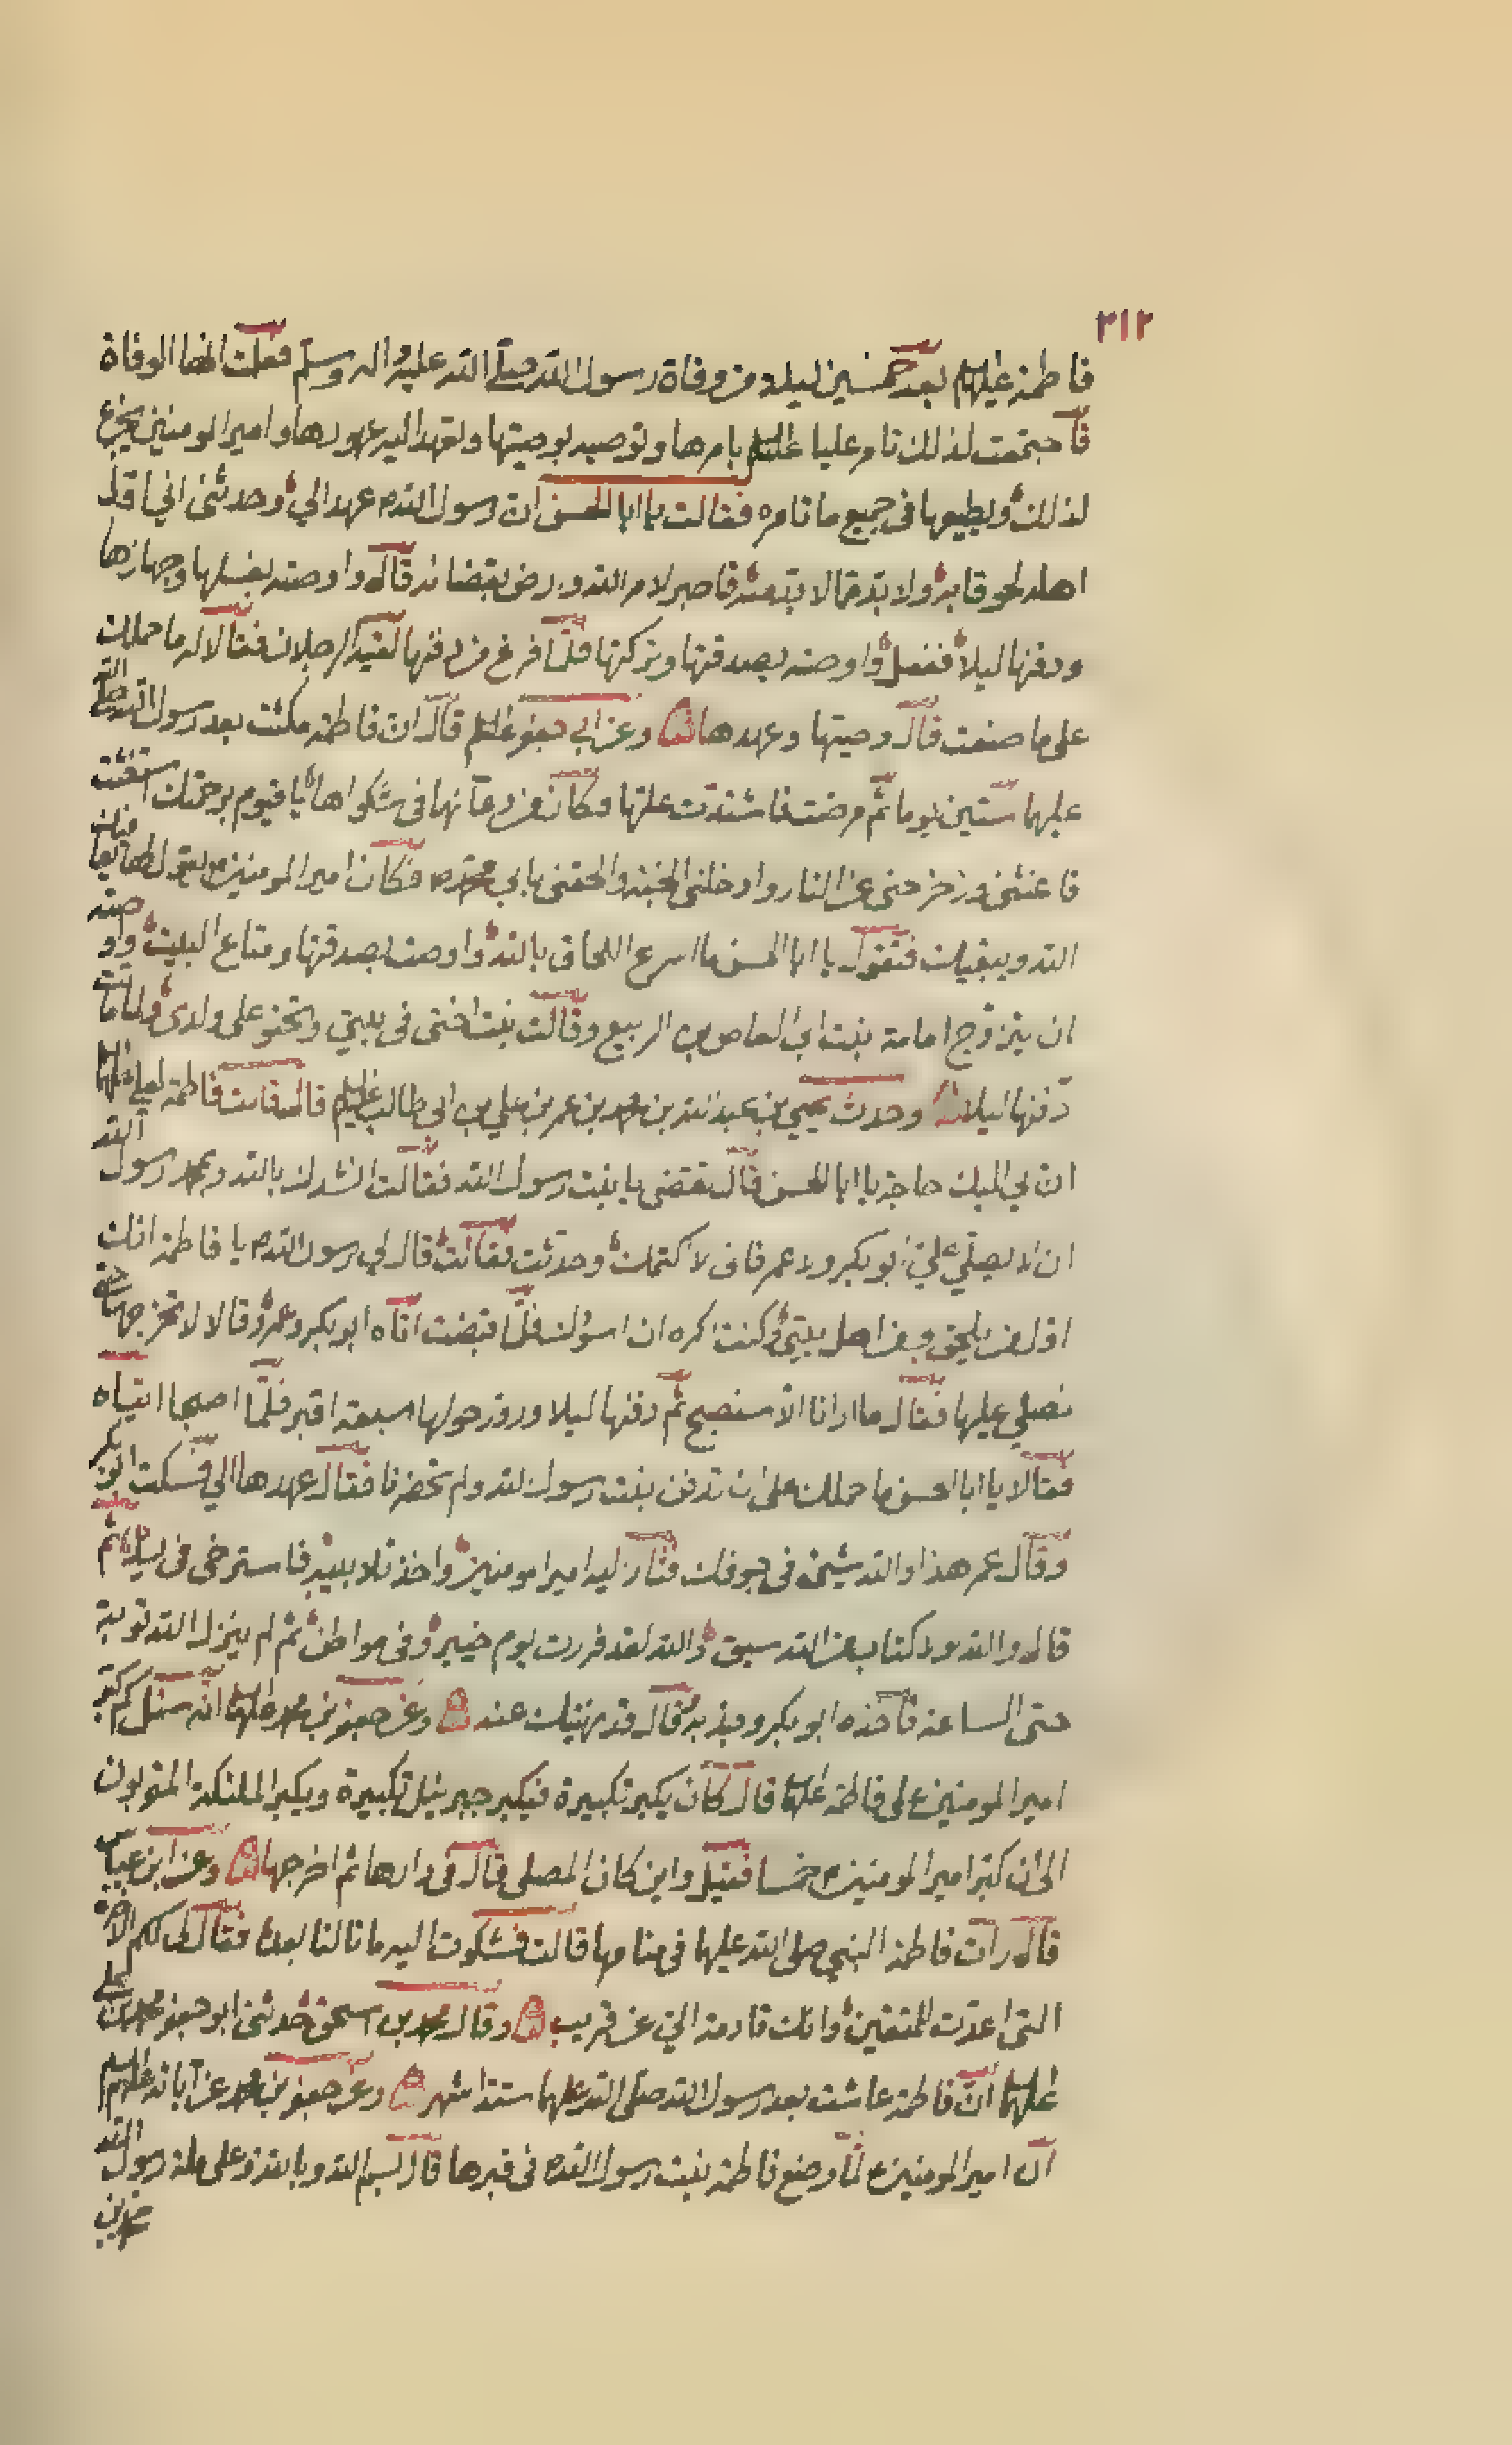 ٣١٢
فاطمة عليهم بعد خمسين ليلة من وفاة رسول الله صلى الله عليه واله وسلم فعلمت انها الوفاة
فاجتمعت لذلك تامر عليا عليلم بامرها وتوصيه بوصيتها وتعهد اليه عهودها وامير المومنين يجزع
لذلك ويطيعها في جميع ما تامره فقالت يا ابا الحسن ان رسول الله ص عهد الي وحدثني اني اول
اهله لحوقا به ولا بد مما لا بد منه فاصبر لامر الله وارض بقضائه قال واوصته بغسلها وجهازها
ودفنها ليلا ففعل واوصته بصدقتها وتركتها فلما فرغ من دفنها لقيه الرجلان فقالا له ما حملك
على ما صنعت قال وصيتها وعهدها وعن ابي جعفر عليلم قال ان فاطمة مكثت بعد رسول الله صلى الله
عليهما ستين يوما ثم مرضت فاشتدت علتها فكان من دعائها في شكواها يا قيوم برحمتك استغثت
فاغثني وزحزحني عن النار وادخلني الجنة والحقني بابي محمد ص فكان امير المومنين ع يقول لها يعافيك
الله ويبقيك فتقول يا ابا الحسن ما اسرع اللحاق بالله واوصت بصدقتها ومتاع البيت واوصته
ان يتزوج امامة بنت ابي العاص بن الربيع وقالت بنت اختي في بيتي وتحنو على ولدي ولما ماتت
دفنها ليلا وحدث يحيى بن عبد الله بن محمد بن عمر بن علي بن ابي طالب عليلم قال قالت فاطمة لعلي عليهما
ان لي اليك حاجة يا ابا الحسن قال تقضى يا بنت رسول الله فقالت انشدك بالله وبمحمد رسول الله
ان لا يصلي علي ابو بكر ولا عمر فاني لا كتمتك وحدثت فقالت قال لي رسول الله ص يا فاطمة انك
اول من يلحق بي من اهل بيتي وكنت اكره ان اسؤك فلما قبضت اتاه ابو بكر وعمر وقالا لا تخرجها حتى
نصلي عليها فقال ما ارانا الا سنصبح ثم دفنها ليلا ورور حولها سبعة اقبر فلما اصبحا اتياه
فقالا يا ابا الحسن ما حملك على ان تدفن بنت رسول الله ولم تحضرنا فقال عهدها الي فسكت ابو بكر
وقال عمر هذا والله شيئ في جوفك فثار اليه امير المومنين واخذ بتلابيبه فاسترخى في يده ثم
قال والله لولا كتاب من الله سبق والله لقد فررت يوم خيبر وفي مواطن ثم لم ينزل الله توبة
حتى الساعة فاخذه ابو بكر وجذبه وقال قد نهيتك عنه وعن جعفر بن محمد عليهما انه سئل كم كبر
امير المومنين على فاطمة عليها قال كان يكبر تكبيرة فيكبر جبرئيل تكبيرة ويكبر الملئكة المقربون
الى ان كبر امير المومنين ع خمسا فقيل واين كان المصلى قال في دارها ثم اخرجها وعن ابن عباس
قال رات فاطمة النبي صلى الله عليهما في منامها قالت فشكوت اليه ما نالنا بعده فقال لي لكم الاخرة
التي اعدت للمتقين وانك قادمة الي عن قريب وقال محمد بن اسحق حدثني ابو جعفر محمد بن علي
عليهما ان فاطمة عاشت بعد رسول الله صلى الله عليهما ستة اشهر وعن جعفر بن محمد عن آبائه عليهم السلم
ان امير المومنين ع لما وضع فاطمة بنت رسول الله ص في قبرها قال بسم الله وبالله وعلى ملة رسول الله
محمد بن